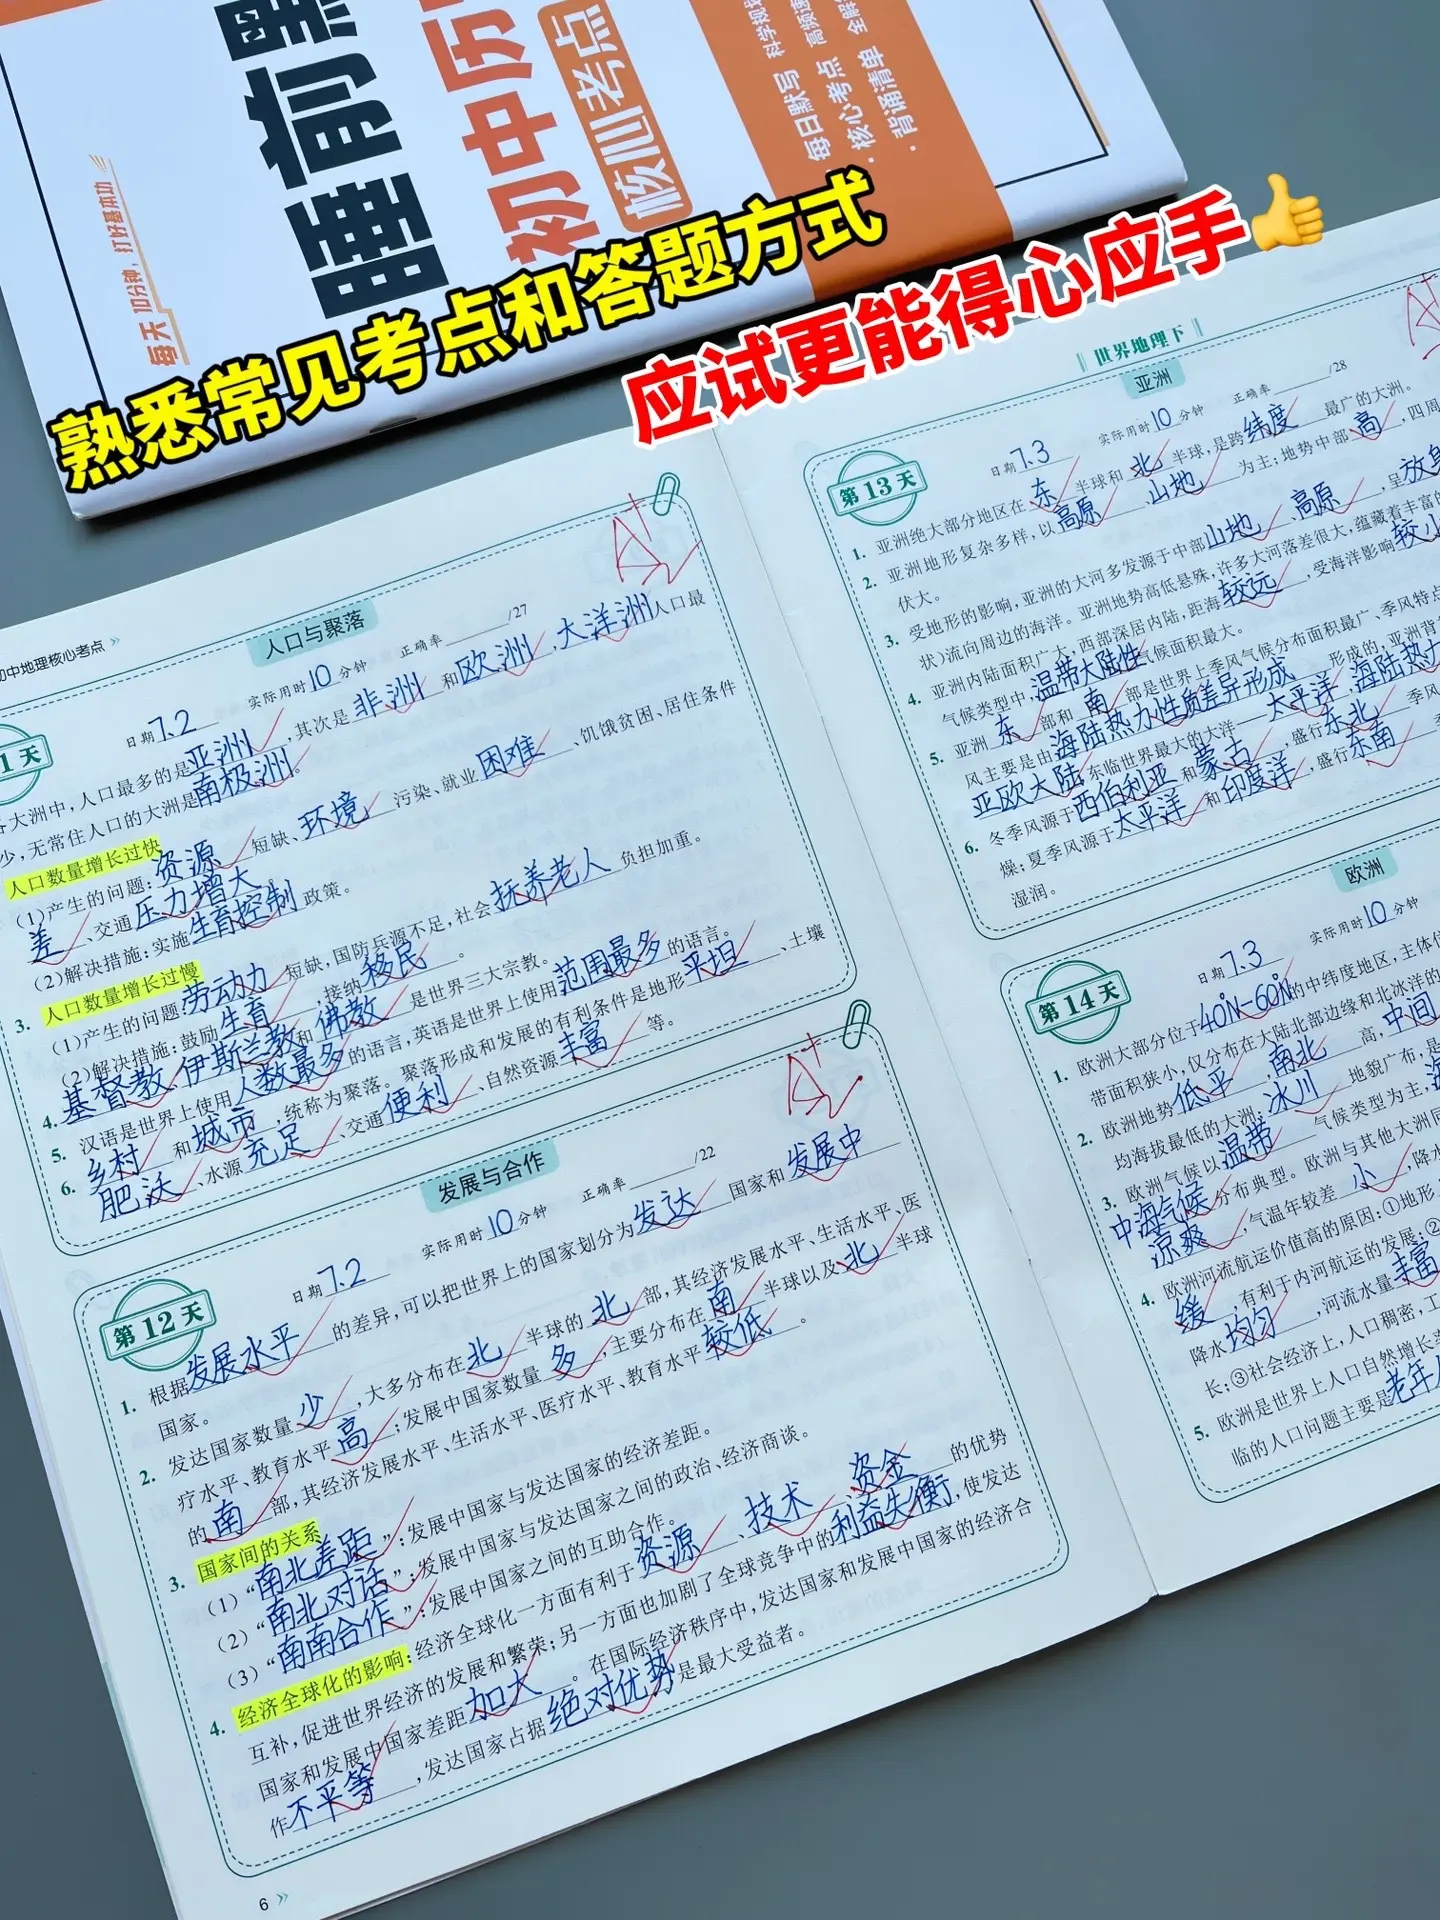 睡前
初中历
核心考点
每天10分钟,打好基本功
每日默写 科学规划
·核心考点 高频速
·背诵清单 全解
熟悉常见考点和答题方式
应试更能得心应手👍
初中地理核心考点
人口与聚落
日期 7.2 实际用时 10 分钟 正确率 /27
1天
各大洲中,人口最多的是亚洲,其次是非洲和欧洲,大洋洲人口最
少,无常住人口的大洲是南极洲。
人口数量增长过快
(1)产生的问题:资源短缺、环境污染、就业困难、饥饿贫困、居住条件
差、交通压力增大。
(2)解决措施:实施生育控制政策。
3. 人口数量增长过慢
(1)产生的问题劳动力短缺,国防兵源不足,社会抚养老人负担加重。
(2)解决措施:鼓励生育,接纳移民。
4. 基督教、伊斯兰教和佛教是世界三大宗教。
5. 汉语是世界上使用人数最多的语言,英语是世界上使用范围最多的语言。
6. 乡村和城市,统称为聚落。聚落形成和发展的有利条件是地形平坦、土壤
肥沃、水源充足、交通便利、自然资源丰富等。
发展与合作
第12天
日期 7.2 实际用时 10 分钟 正确率 /22
1. 根据发展水平的差异,可以把世界上的国家划分为发达国家和发展中
国家。
2. 发达国家数量少,大多分布在北半球的北部,其经济发展水平、生活水平、医
疗水平、教育水平高;发展中国家数量多,主要分布在南半球以及北半球
的南部,其经济发展水平、生活水平、医疗水平、教育水平较低。
3. 国家间的关系
(1)“南北差距”:发展中国家与发达国家的经济差距。
(2)“南北对话”:发展中国家与发达国家之间的政治、经济商谈。
(3)“南南合作”:发展中国家之间的互助合作。
4. 经济全球化的影响:经济全球化一方面有利于资源、技术、资金的优势
互补,促进世界经济的发展和繁荣;另一方面也加剧了全球竞争中的利益失衡,使发达
国家和发展中国家差距加大。在国际经济秩序中,发达国家和发展中国家的经济合
作不平等,发达国家占据绝对优势是最大受益者。
6
世界地理下
亚洲
第13天
日期 7.3 实际用时 10 分钟 正确率 /28
1. 亚洲绝大部分地区在东半球和北半球,是跨纬度最广的大洲。
2. 亚洲地形复杂多样,以高原、山地为主;地势中部高,四周
伏大。
3. 受地形的影响,亚洲的大河多发源于中部山地、高原,呈放射
状)流向周边的海洋。亚洲地势高低悬殊,许多大河落差很大,蕴藏着丰富的
4. 亚洲内陆面积广大,西部深居内陆,距海较远,受海洋影响较小
气候类型中,温带大陆性气候面积最大。
5. 亚洲东部和南部是世界上季风气候分布面积最广、季风特点
风主要是由海陆热力性质差异形成形成的,亚洲背
亚欧大陆,东临世界最大的大洋——太平洋,海陆热力
6. 冬季风源于西伯利亚和蒙古,盛行东北季风
燥;夏季风源于太平洋和印度洋,盛行东南季
湿润。
欧洲
第14天
日期 7.3 实际用时 10 分钟
1. 欧洲大部分位于40°N-60°N的中纬度地区,主体位
带面积狭小,仅分布在大陆北部边缘和北冰洋的
2. 欧洲地势低平,南北高,中间
均海拔最低的大洲;冰川地貌广布,是
3. 欧洲气候以温带气候类型为主,海
中海气候分布典型。欧洲与其他大洲同
凉爽,气温年较差小,降水
4. 欧洲河流航运价值高的原因:①地形
缓,有利于内河航运的发展;②
降水均匀,河流水量丰富
长;③社会经济上,人口稠密,工
5. 欧洲是世界上人口自然增长率
临的人口问题主要是老年人